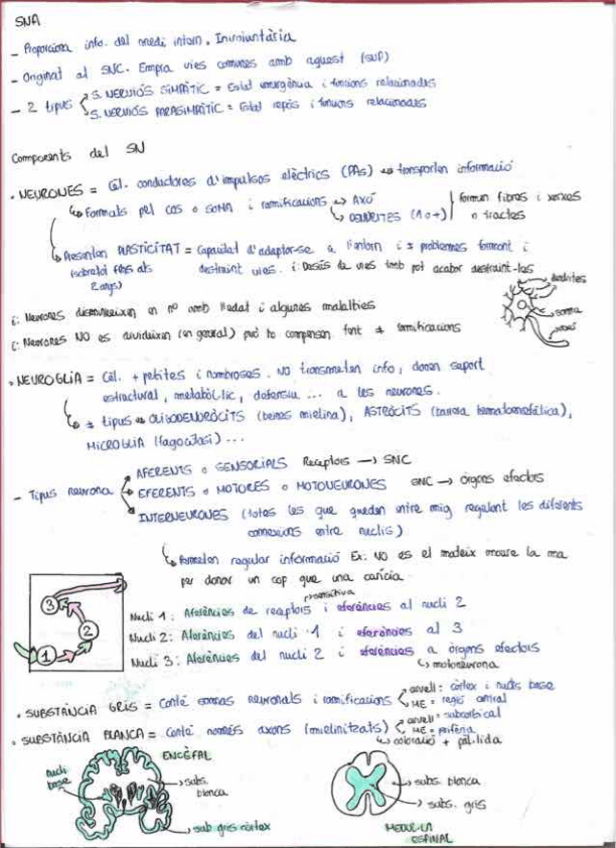 SNA
- Proporciona info. del medi intern. Involuntària
- Original al SNC. Empra vies comunes amb aquest (SNP)
- 2 tipus S. NERVIÓS SIMPÀTIC = Estat emergència i funcions relacionades
S. NERVIÓS PARASIMPÀTIC = Estat repòs i funcions relacionades
Components del SN
• NEURONES = Cèl. conductores d'impulsos elèctrics (PAs) ↔ transporten informació
↳ Formats pel cos o SOMA i ramificacions → AXÓ
↳ DENDRITES (1 o +) | formen fibres i xarxes o tractes
↳ Presenten PLASTICITAT = Capacitat d'adaptar-se a l'entorn i ≠ problemes formant i
(sobretot fins als 2 anys) destruint vies. i: Desús de vies tamb pot acabar destruint-les
dendrites
soma
axó
i: Neurones disminueixen en nº amb l'edat i algunes malalties
i: Neurones NO es divideixen (en general) però ho compensen fent ≠ ramificacions
• NEUROGLIA = Cèl. + petites i nombroses. NO transmeten info, donen suport
estructural, metabòlic, defensiu ... a les neurones.
↳ ≠ tipus → OLIGODENDRÒCITS (beines mielina), ASTRÒCITS (barrera hematoencefàlica),
MICROGLIA (fagocitosi) ...
- Tipus neurona AFERENTS o SENSORIALS Receptors → SNC
EFERENTS o MOTORES o MOTONEURONES SNC → òrgans efectors
INTERNEURONES (totes les que queden entre mig regulant les diferents
connexions entre nuclis)
↳ Permeten regular informació Ex: NO és el mateix moure la ma
per donar un cop que una carícia
1
2
3
sensitiva
Nucli 1: Aferències de receptors i eferències al nucli 2
Nucli 2: Aferències del nucli 1 i eferències al 3
Nucli 3: Aferències del nucli 2 i eferències a òrgans efectors
↳ motoneurona
• SUBSTÀNCIA GRIS = Conté somes neuronals i ramificacions cervell: còrtex i nuclis base
ME = regió central
• SUBSTÀNCIA BLANCA = Conté només axons (mielinitzats) cervell = subcortical
ME = perifèria
↳ coloració + pàl·lida
ENCÈFAL
nucli base
subs. blanca
sub gris còrtex
subs. blanca
subs. gris
MEDUL·LA
ESPINAL